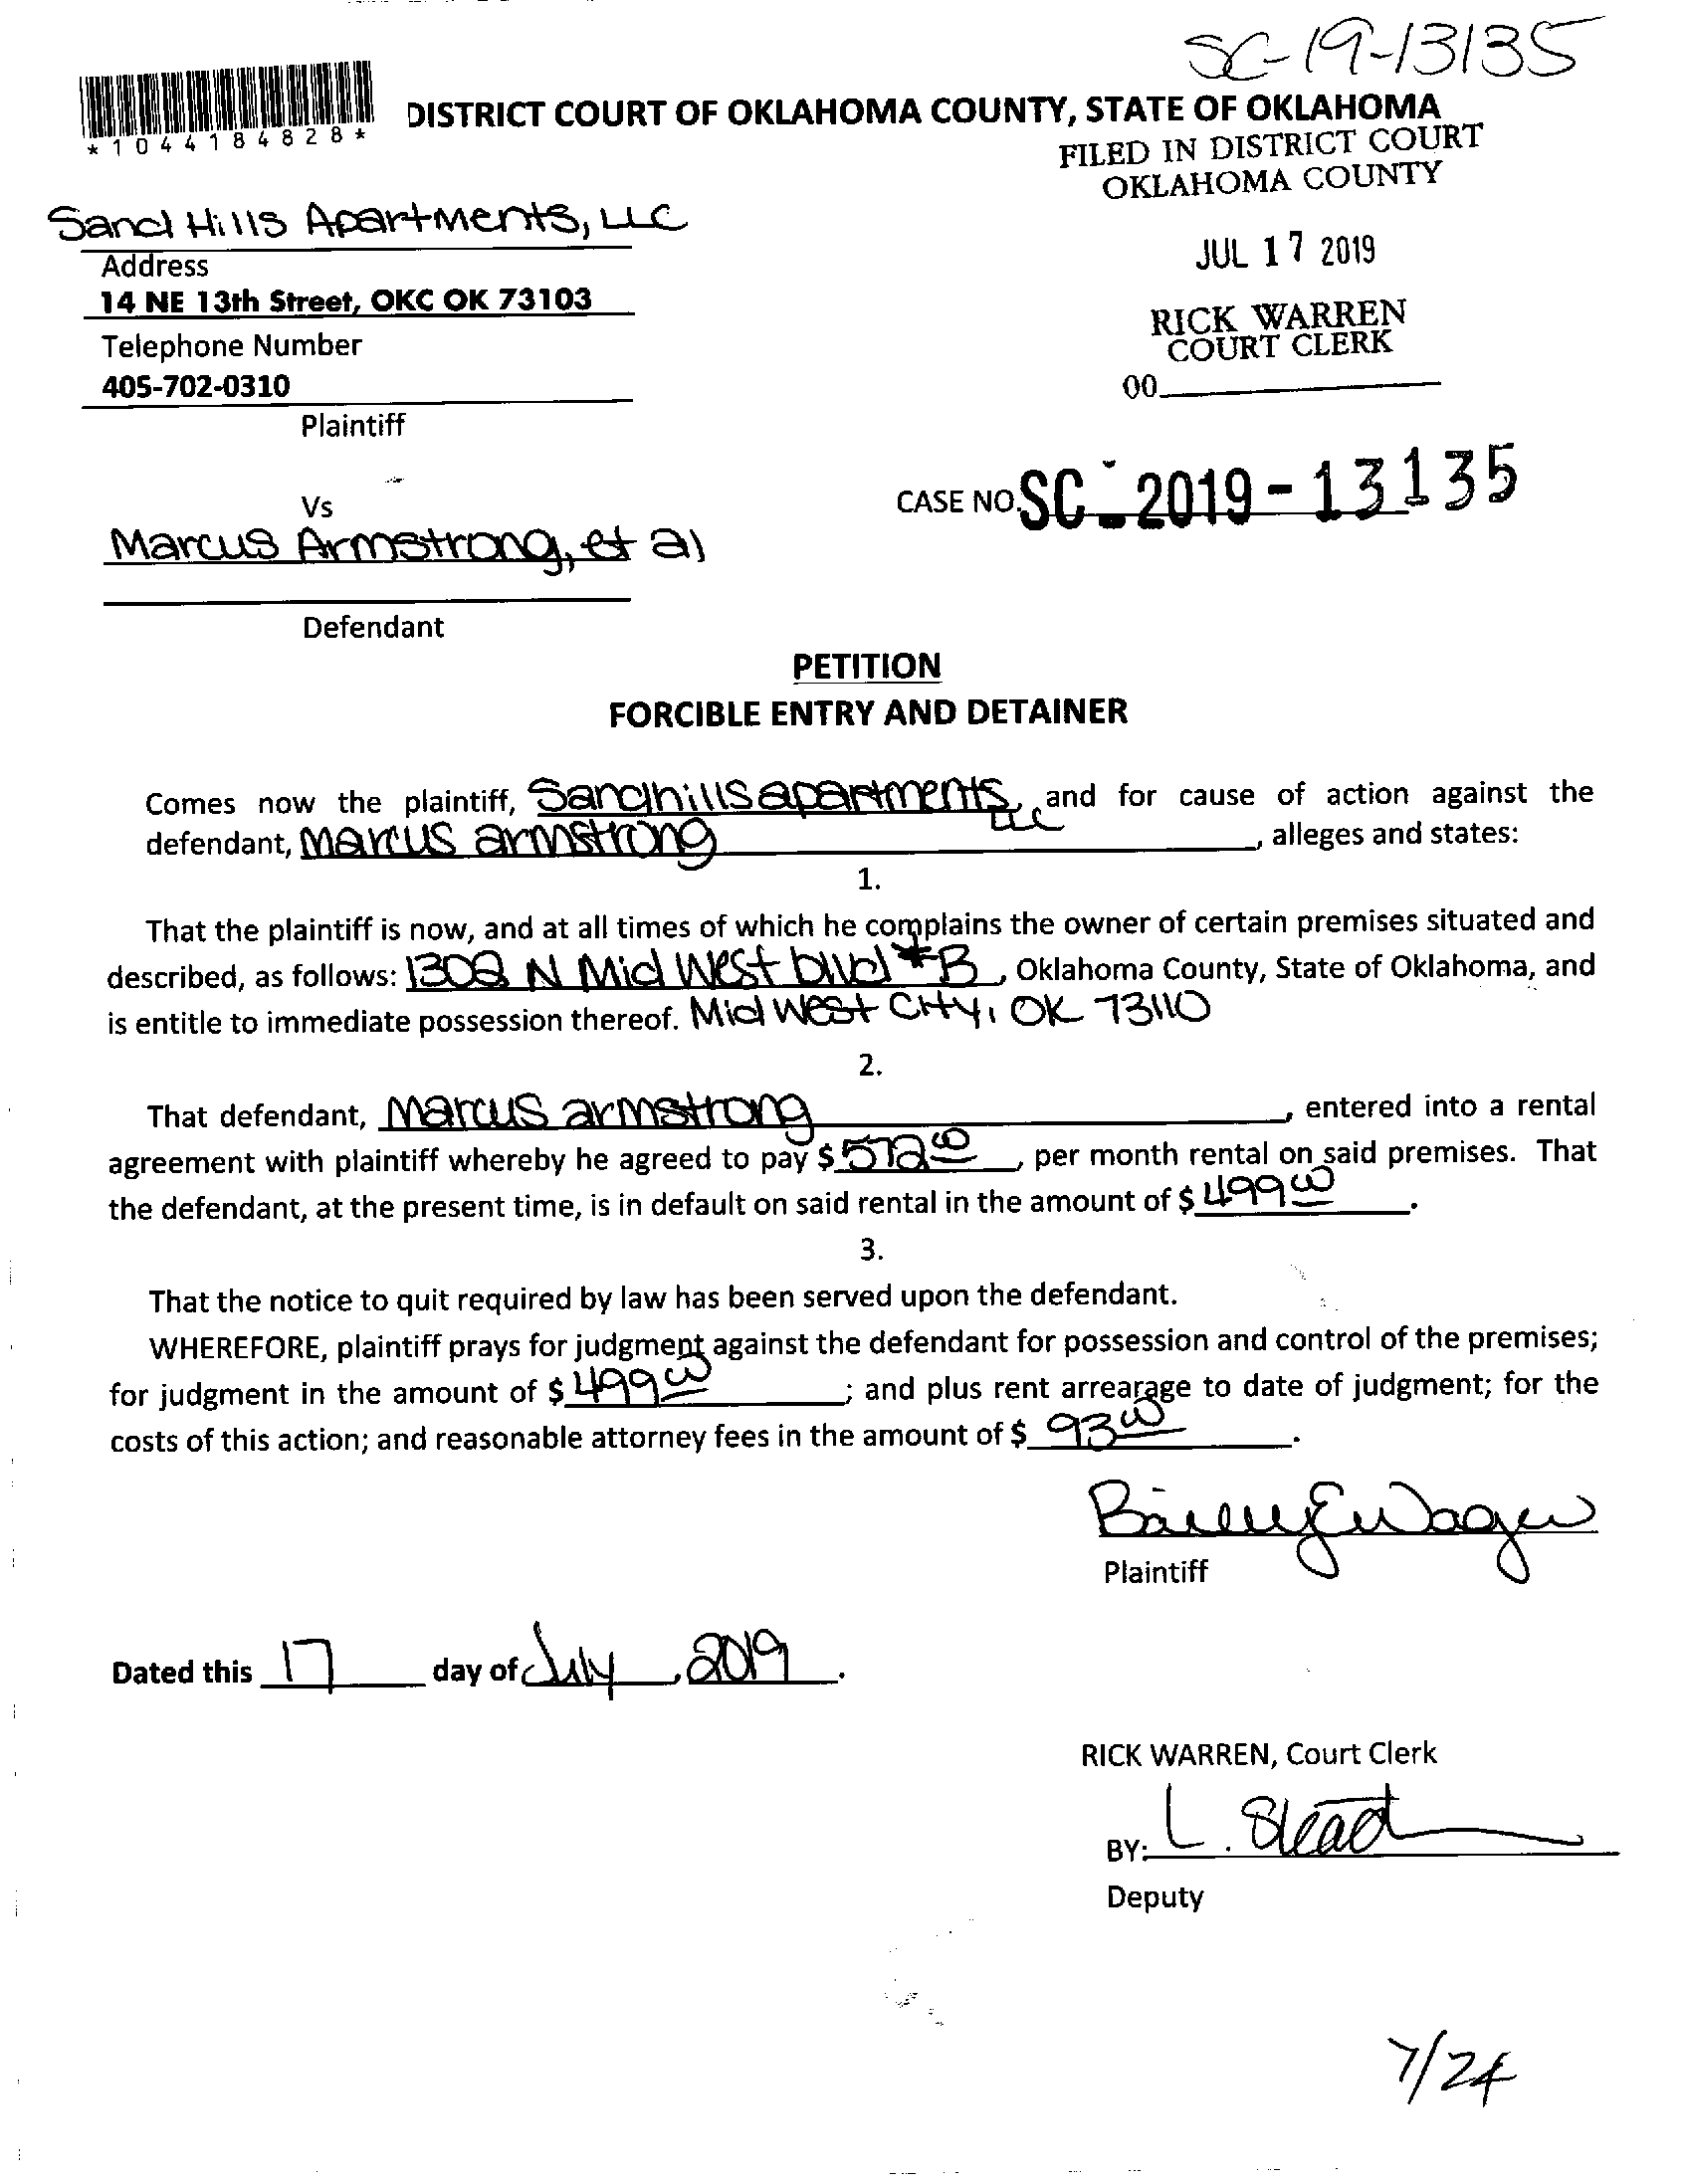 SC-19-13135
DISTRICT COURT OF OKLAHOMA COUNTY, STATE OF OKLAHOMA
*1044184828*
FILED IN DISTRICT COURT
OKLAHOMA COUNTY
Sand Hills Apartments, LLC
JUL 17 2019
Address
14 NE 13th Street, OKC OK 73103
RICK WARREN
COURT CLERK
Telephone Number
405-702-0310
00
Plaintiff
Vs
CASE NO. SC-2019-13135
Marcus Armstrong, et al
Defendant
PETITION
FORCIBLE ENTRY AND DETAINER
Comes now the plaintiff, Sandhills apartments, LLC and for cause of action against the
defendant, Marcus armstrong, alleges and states:
1.
That the plaintiff is now, and at all times of which he complains the owner of certain premises situated and
described, as follows: 1302 N Mid West blvd #B, Oklahoma County, State of Oklahoma, and
is entitle to immediate possession thereof. Mid West City, OK 73110
2.
That defendant, Marcus armstrong, entered into a rental
agreement with plaintiff whereby he agreed to pay $ 572 00, per month rental on said premises. That
the defendant, at the present time, is in default on said rental in the amount of $ 499 00.
3.
That the notice to quit required by law has been served upon the defendant.
WHEREFORE, plaintiff prays for judgment against the defendant for possession and control of the premises;
for judgment in the amount of $ 499 00; and plus rent arrearage to date of judgment; for the
costs of this action; and reasonable attorney fees in the amount of $ 93 00.
Plaintiff
Dated this 17 day of July, 2019.
RICK WARREN, Court Clerk
BY: L.
Deputy
7/24